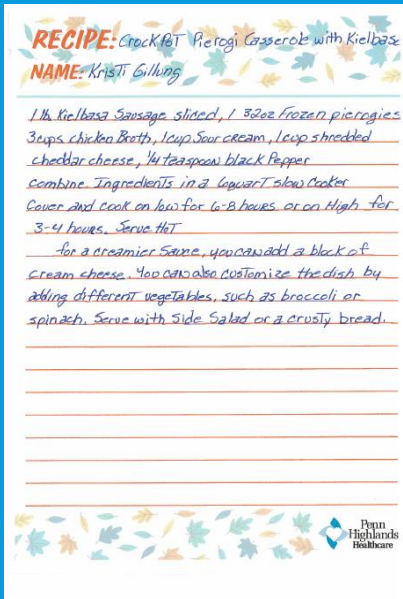 RECIPE: CrockPoT Pierogi Casserole with Kielbasa
NAME: KrisTi Gillung
1 lb Kielbasa Sausage sliced, 1 32oz Frozen pierogies
3cups chicken Broth, 1cup Sour cream, 1cup shredded
cheddar cheese, 1/4 teaspoon black Pepper
Combine IngredienTs in a 6quarT slow Cooker
Cover and cook on low for 6-8 hours or on High for
3-4 hours. Serve HoT
for a creamier Sauce, you can add a block of
cream cheese. You can also cusTomize the dish by
adding differenT vegeTables, such as broccoli or
spinach. Serve with Side Salad or a crusTy bread.
Penn
Highlands
Healthcare